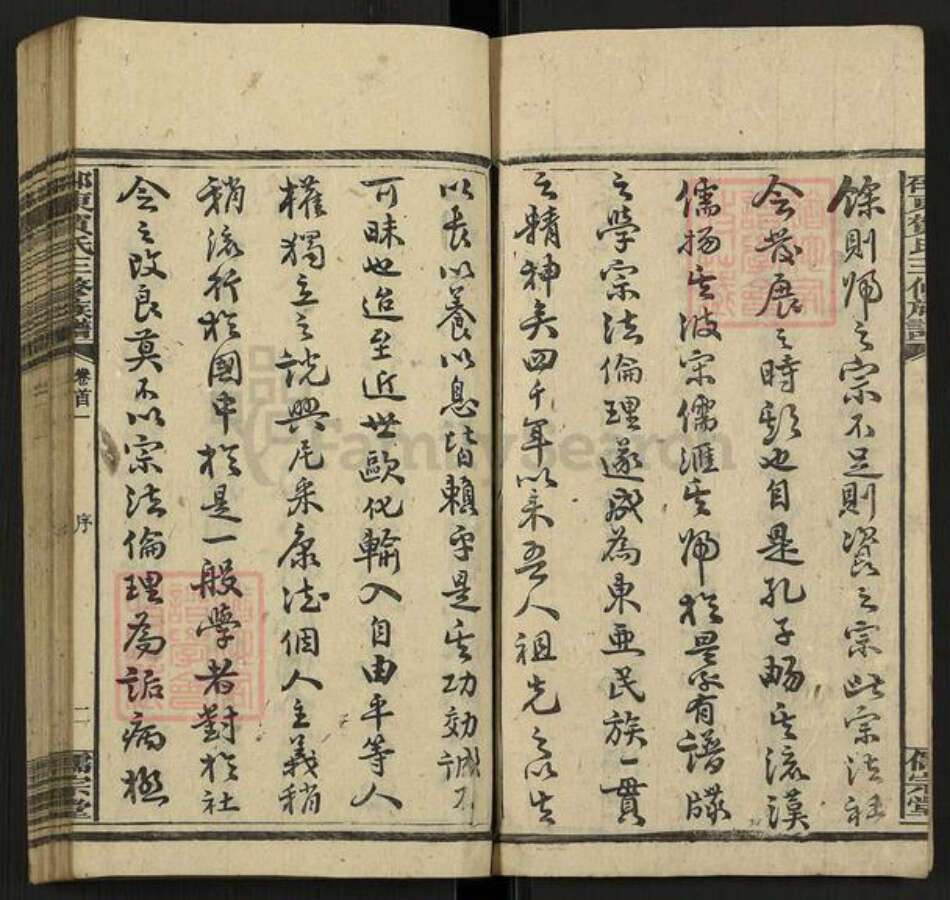 餘則歸之宗不足則資之宗此宗法社
會發展之時期也自是孔子暢其流漢
儒揚其波宋儒滙其歸於是乎有譜牒
之學宗法倫理遂成為東亞民族一貫
之精神矣四千年以來吾人祖先之以生
以長以養以息皆賴乎是其功效誠不
可昧也迨至近世歐化輸入自由平等人
權獨立之說興尼釆康法個人主義稍
稍流行於國中於是一般學者對於社
會之改良莫不以宗法倫理為詬病極
邵東賀氏三修族譜
卷首一
序
二
儒宗堂
FamilySearch